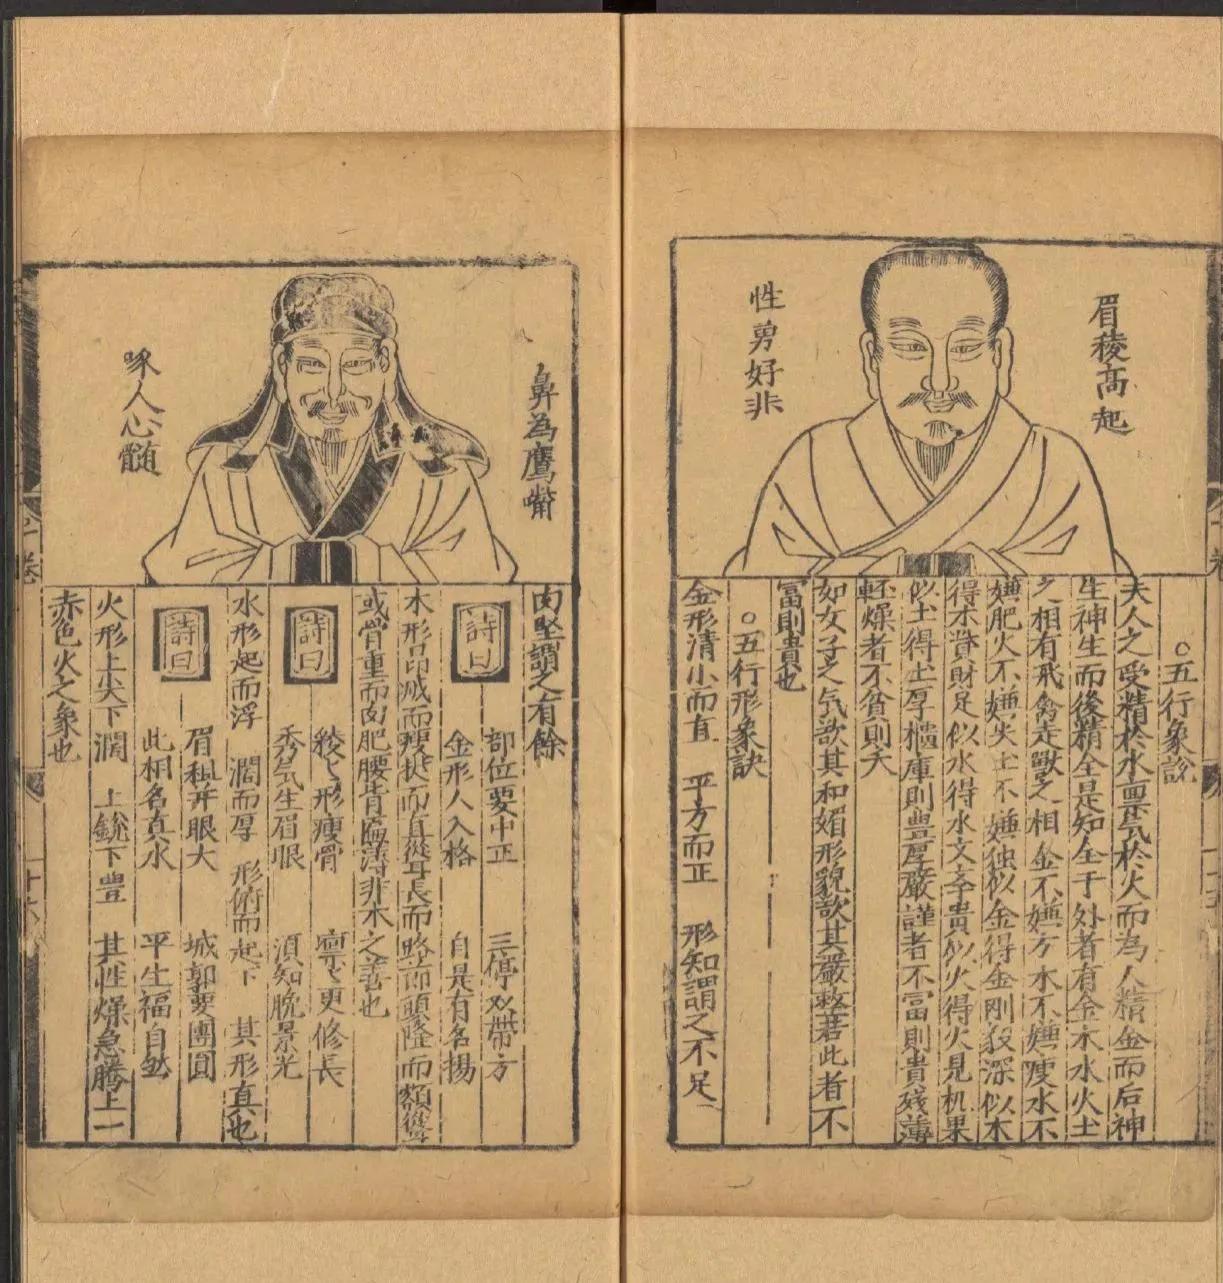 眉稜高起
性勇好非
○五行象說
夫人之受精於水禀氣於火而為人精金而后神
生神生而後精全是知全于外者有金木水火土
之相有飛禽走獸之相金不嫌方木不嫌瘦水不
嫌肥火不嫌尖土不嫌独似金得金刚毅深似木
得木貲財足似水得水文孛貴似火得火見机果
似土得土厚櫃庫則豊厚嚴謹者不富則貴残薄
軽燥者不貧則夭
如女子之気欲其和媚形貌欲其嚴整若此者不
冨則貴也
○五行形象訣
金形清小而直　平方而正　形知謂之不足
鼻為鷹嘴
啄人心髄
肉堅謂之有餘
詩曰
部位要中正　三停双帶方
金形人入格　自是有名揚
木形昂减而瘦挺而直長而露節頭隆而額聳
或骨重而肉肥腰背匾薄非木之善也
詩曰
稜〻形瘦骨　凛〻更修長
秀気生眉眼　須知晩景光
水形起而浮　濶而厚　形俯而起下　其形真也
詩曰
眉粗并眼大　城郭要團圓
此相名真水　平生福自然
火形上尖下濶　上銳下豊　其性燥急騰上一
赤色火之象也